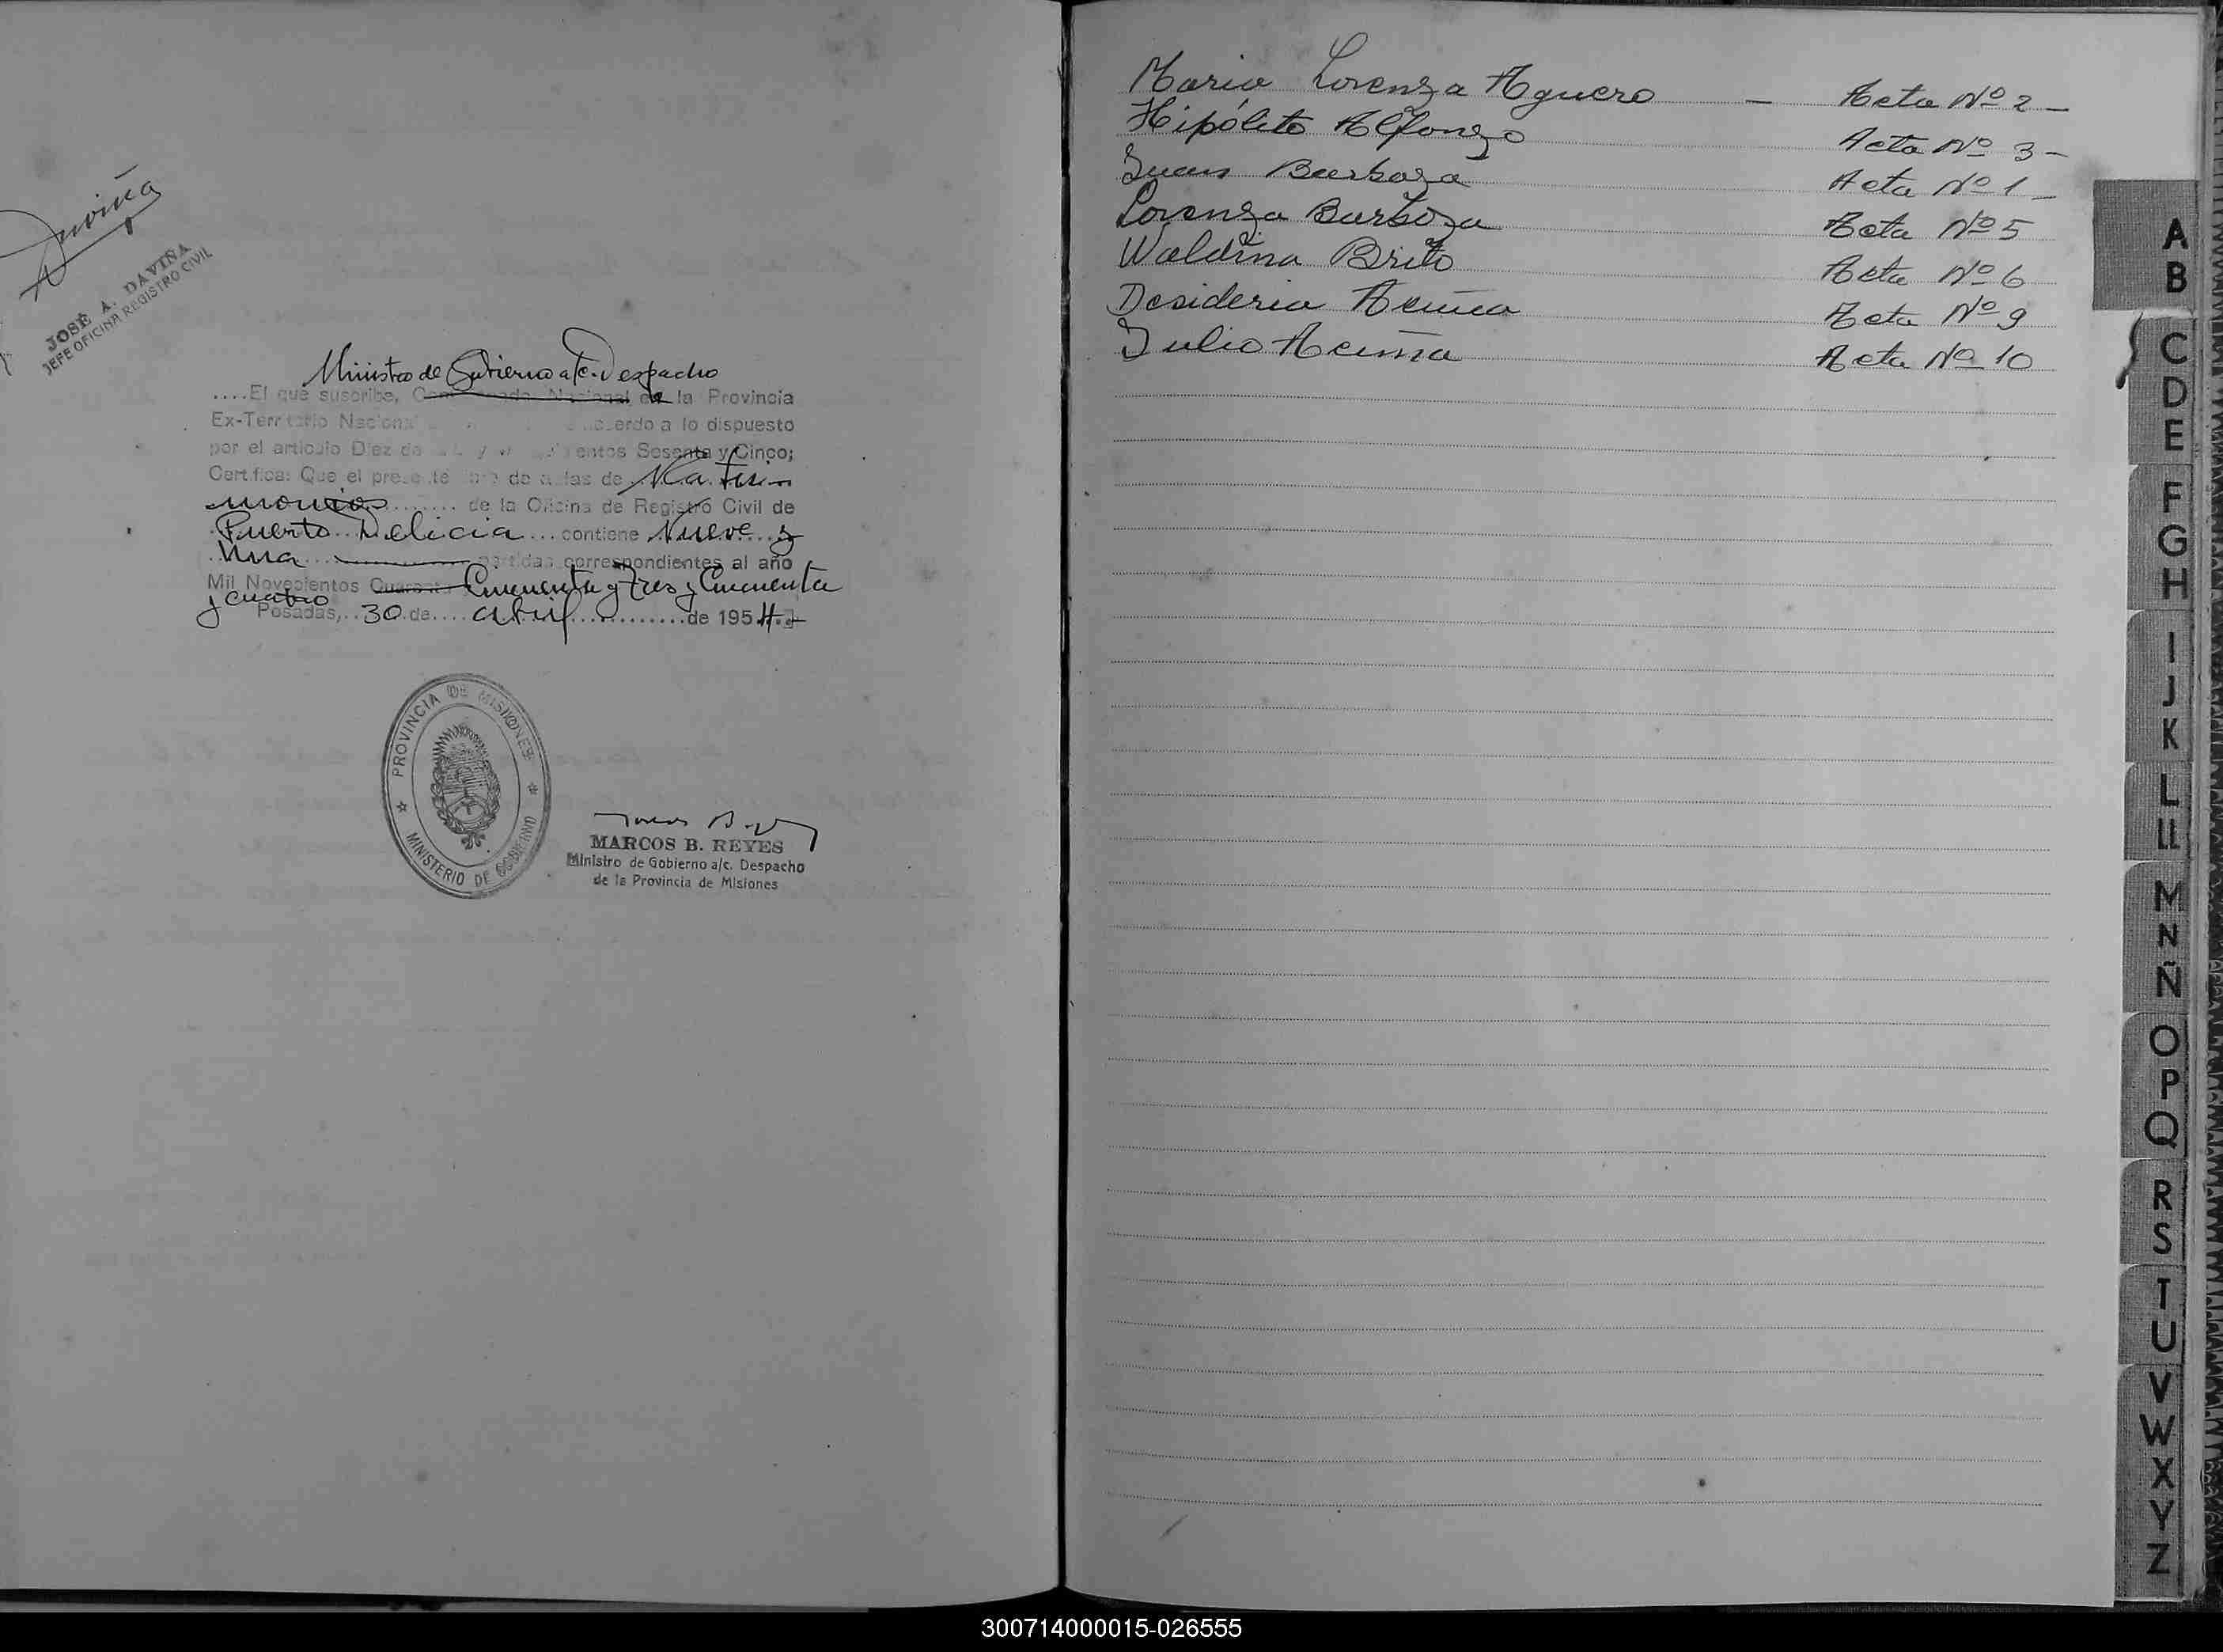 Daviña
JOSÉ A. DAVIÑA
JEFE OFICINA REGISTRO CIVIL
Ministro de Gobierno a/c. Despacho
....El que suscribe, Nacional de la Provincia
Ex-Territorio Nacional acuerdo a lo dispuesto
por el articulo Diez de y Sesenta y Cinco;
Certifica: Que el presente libro de actas de Matri
monios........ de la Oficina de Registro Civil de
Puerto Delicia ... contiene Nueve y
Una partidas correspondientes al año
Mil Novecientos Cuarenta Cincuenta y Tres y Cincuenta
y cuatro
Posadas, 30 de.... abril ............de 1954.-
PROVINCIA DE MISIONES
MINISTERIO DE GOBIERNO
MARCOS B. REYES
Ministro de Gobierno a/c. Despacho
de la Provincia de Misiones
Maria Lorenza Aguero - Acta Nº 2 -
Hipólito Alfonzo Acta Nº 3 -
Juan Barboza Acta Nº 1 -
Lorenza Barboza Acta Nº 5
Waldina Brito Acta Nº 6
Desideria Acuña Acta Nº 9
Julio Acuña Acta Nº 10
A
B
C
D
E
F
G
H
I
J
K
L
LL
M
N
Ñ
O
P
Q
R
S
T
U
V
W
X
Y
Z
300714000015-026555